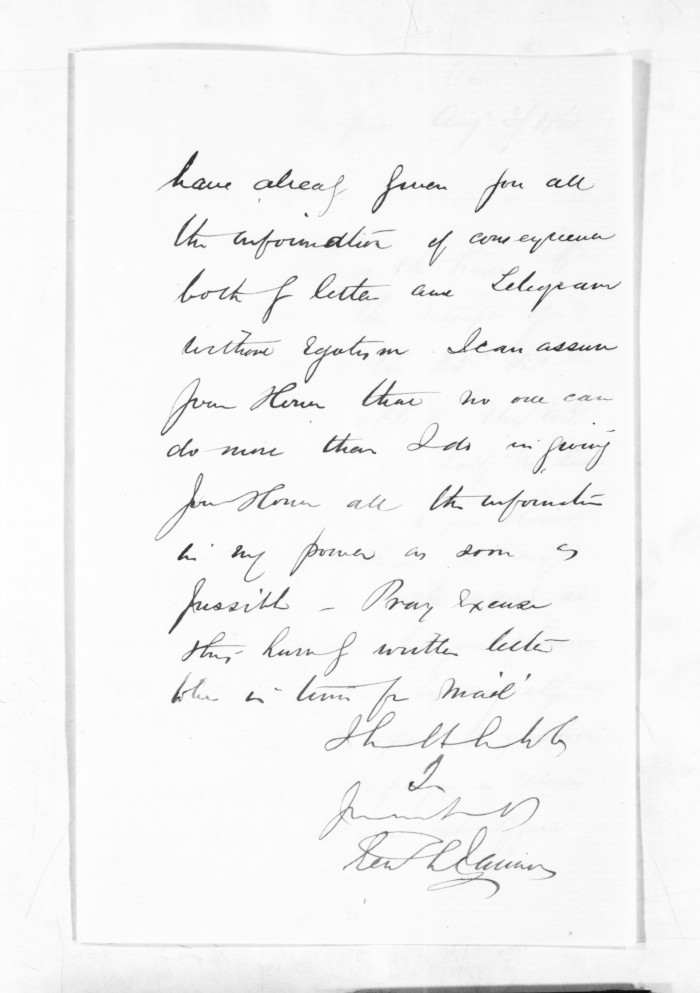 have already given you all
the information of consequence
both by letter and Telegram
without Egotism I can assure
your Honor that no one can
do more than I do in giving
your Honor all the information
in my power as soon as
possible – Pray Excuse
this hurriedly written letter
to be in time for mail
I